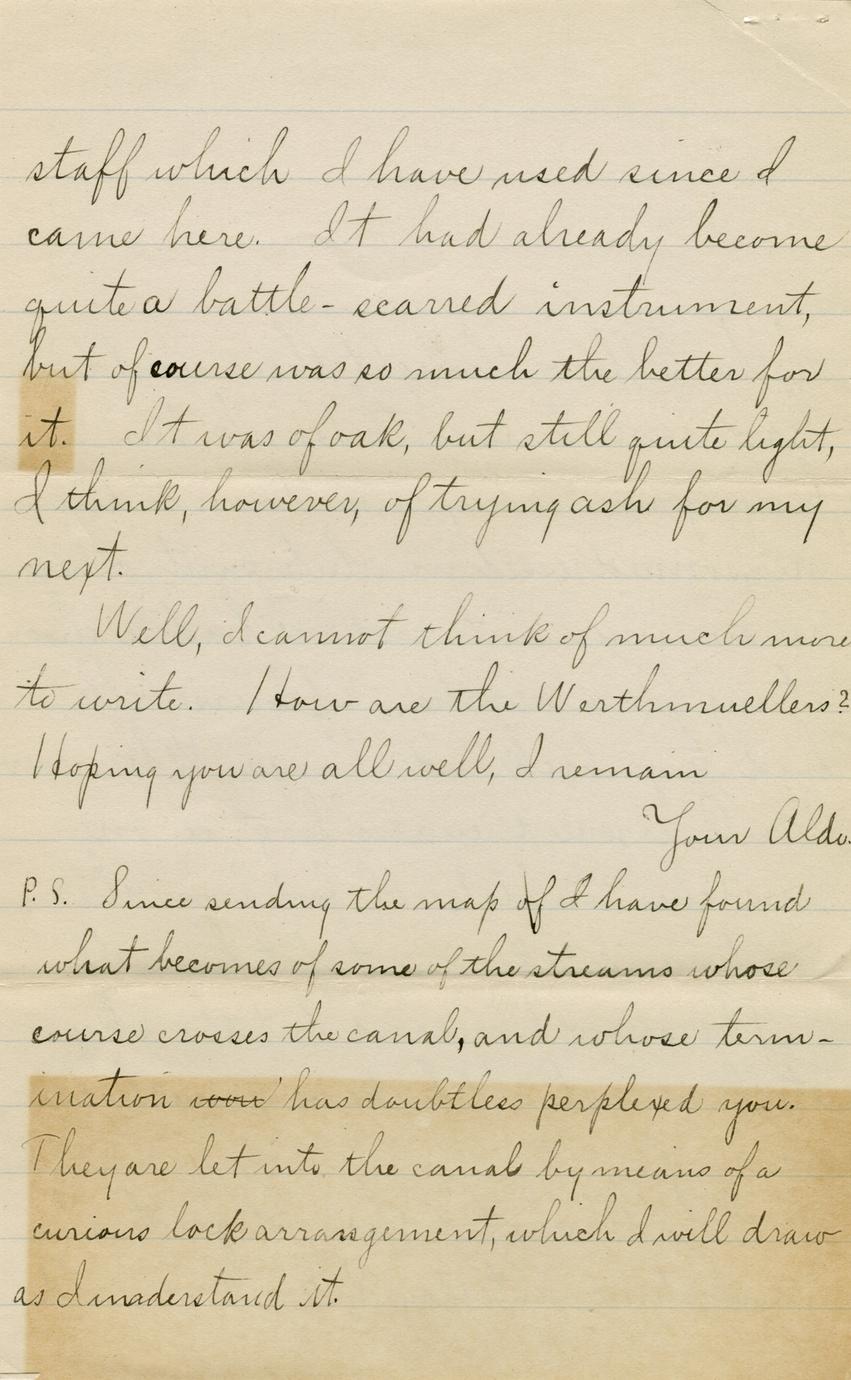 staff which I have used since I
came here. It had already become
quite a battle-scarred instrument,
but of course was so much the better for
it. It was of oak, but still quite light,
I think, however, of trying ash for my
next.
Well, I cannot think of much more
to write. How are the Werthmuellers?
Hoping you are all well, I remain
Your Aldo.
P.S. Since sending the map of I have found
what becomes of some of the streams whose
course crosses the canal, and whose term-
ination has doubtless perplexed you.
They are let into the canal by means of a
curious lock arrangement, which I will draw
as I understand it.